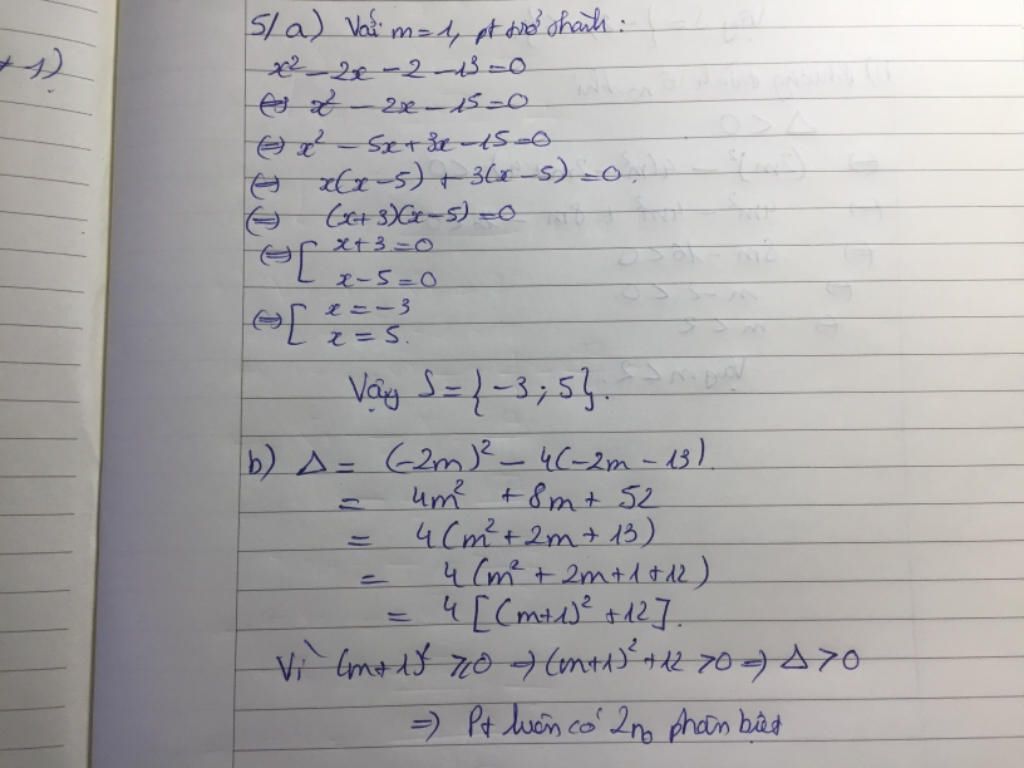 + 1)
5/ a) Với m = 1, pt trở thành :
x² – 2x – 2 – 13 = 0
⇔ x² – 2x – 15 = 0
⇔ x² – 5x + 3x – 15 = 0
⇔ x(x – 5) + 3(x – 5) = 0.
⇔ (x + 3)(x – 5) = 0
⇔ [ x + 3 = 0
x – 5 = 0
⇔ [ x = – 3
x = 5.
Vậy S = { – 3 ; 5}.
b) Δ = (–2m)² – 4(–2m – 13).
= 4m² + 8m + 52
= 4(m² + 2m + 13)
= 4(m² + 2m + 1 + 12)
= 4[(m+1)² + 12].
Vì (m+1)² ⩾ 0 → (m+1)² + 12 > 0 ⇒ Δ > 0
⇒ Pt luôn có 2n₀ phân biệt